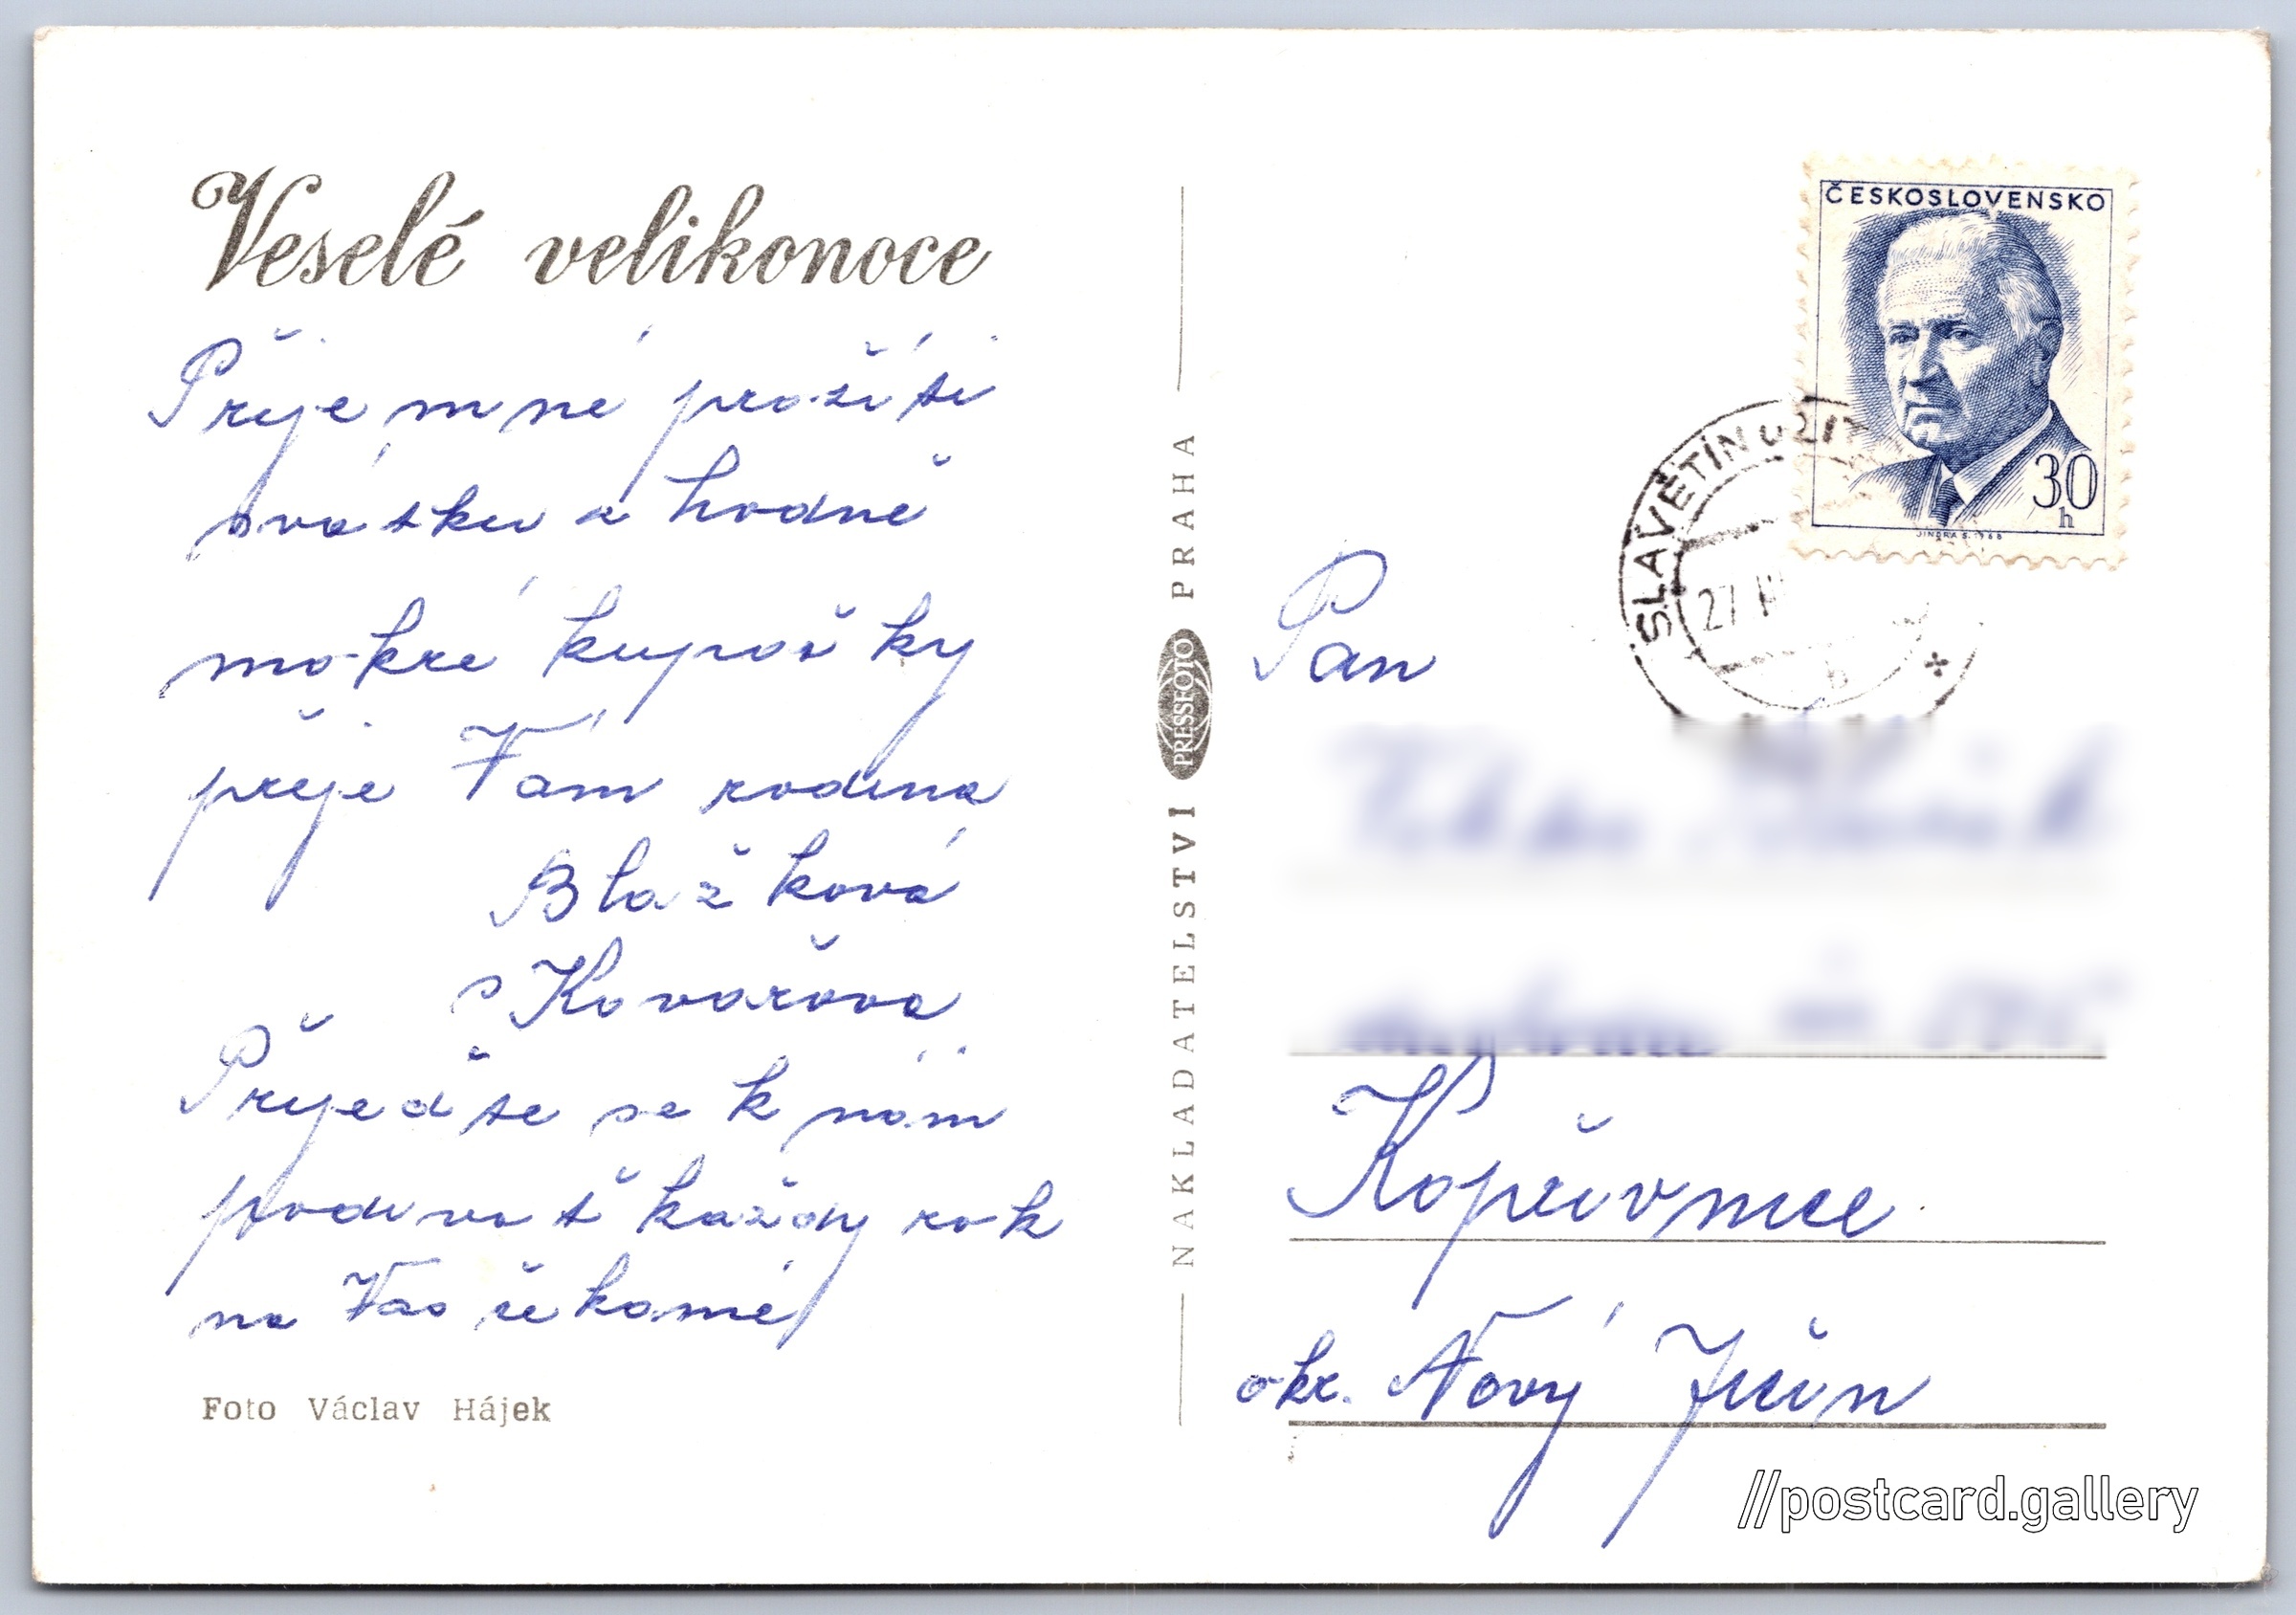 Veselé velikonoce
Příjemné prožití
svátku a hodně
mokré kupačky
přeje Vám rodina
Blažková
Kovařova
Přijedte se k nám
podivat každy rok
na Vas čekame
Foto Václav Hájek
NAKLADATELSTVI PRESSFOTO PRAHA
ČESKOSLOVENSKO
30
h
JINDRA S. 1968
SLAVĚTÍN U
27 III
b
Pan
Kopřivnice
okr. Nový Jičín
//postcard.gallery